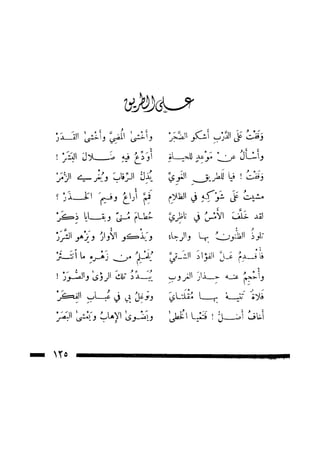 على الطريق
وَقَفْتُ عَلَى الدَّرْبِ أَشكو الضَّجَرْ وأَخْشى المُضِيَّ وأَخْشى القَدَرْ
وأَسْأَلُ عَنْ مَوْعِدٍ للحياةِ أُوَدِّعُ فيهِ ضَلالَ البَشَرْ !
وَقَفْتُ ! فيا لَلطريقِ الغَوِيِّ يُذِلُّ الرِّقابَ ويُغْري الزُّمَرْ
مشيتُ عَلَى شَوْكِهِ في الظلامِ فَلِمْ أُراعُ وفيمَ الحَذَرْ ؟
لقد خَلَّفَ الأَمْسُ في ناظِرَيَّ حُطامَ مُنىً وبقايا ذِكَرْ
تلوذُ الظنونُ بها والرجاءُ وَيَذْكو الأُوارُ ويَزْهو الشَّرَرْ
فأَقْدِمُ عَلَّ الفؤادَ الشقيَّ يُلَمْلِمُ من زَهْرِهِ ما انْتَثَرْ
وأُحْجِمُ عنه حِذارَ الغروبِ يُبَدِّدُ تلكَ الرؤى والصُّوَرْ !
فَلاةٌ تَتيهُ بها مُقْلَتايَ وتوغِلُ بي في عُبابِ الفِكَرْ
أخافُ أضلُّ ! فَتَعْيا الخُطى وَيُشوى الإهابُ ويَعْشى البَصَرْ
١٢٥